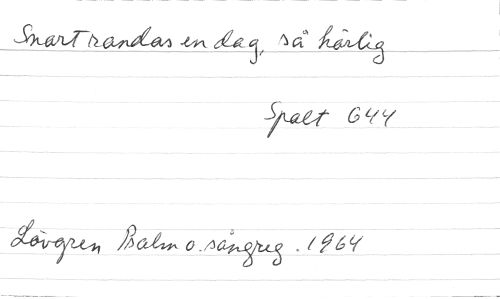 Snart randas en dag, så härlig
Spalt 644
Lövgren Psalm o. sångreg. 1964